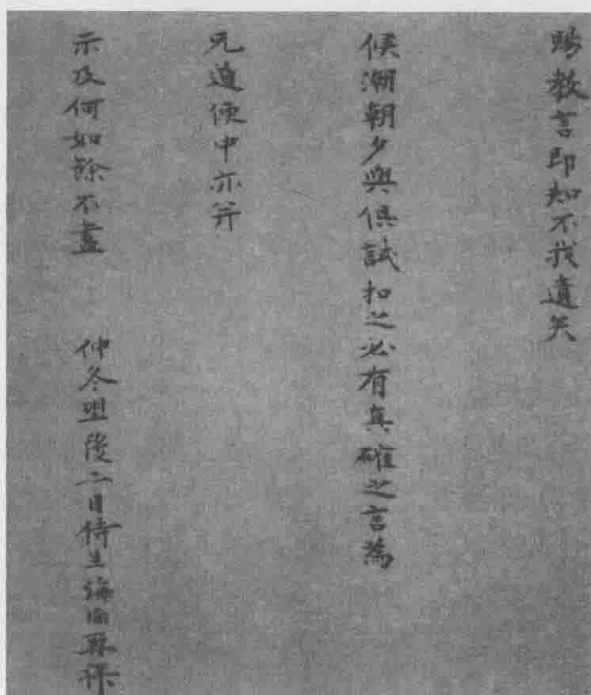 賜教言即知不我遺矣
候潮朝夕與俱試扣之必有真確之言為
兄道便中亦并
示及何如餘不盡 仲冬望後二日侍生